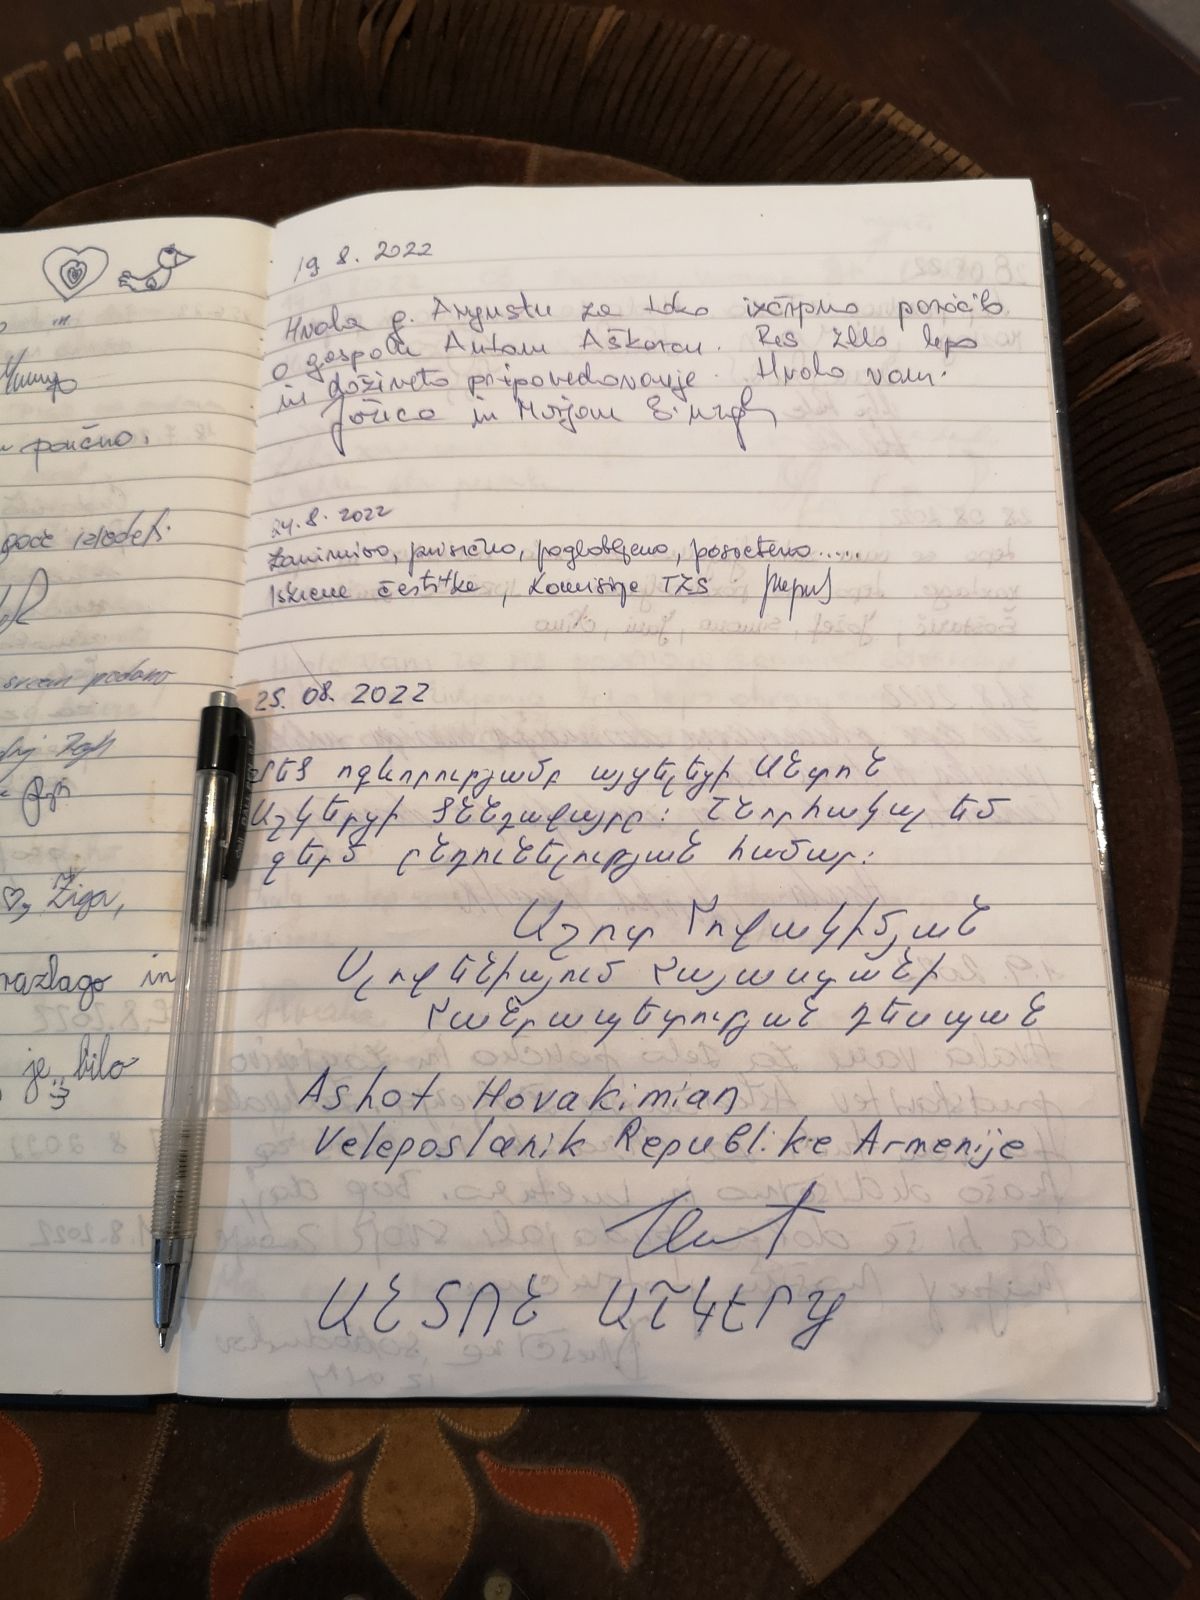 poučno.
goče izledek.
srčen podano
Žiga,
razlago in
je bilo
19 8. 2022
Hvala g. Avgustu za tako izčrpno poročilo
o gospodu Antonu Aškercu. Res zelo lepo
in doživeto pripovedovanje. Hvala vam.
Jožica in Marjan
24.8.2022
Zanimivo, prisrčno, poglobljeno, posvečeno.....
Iskrene čestitke, Komisija TZS
25.08.2022
Մեծ ոգևորությամբ այցելեցի Անտոն
Աշկերցի ծննդավայրը: Շնորհակալ եմ
ջերմ ընդունելության համար:
Աշոտ Հովակիմյան
Սլովենիայում Հայաստանի
Հանրապետության դեսպան
Ashot Hovakimian
Veleposlanik Republike Armenije
ԱՆՏՈՆ ԱՇԿԵՐՑ